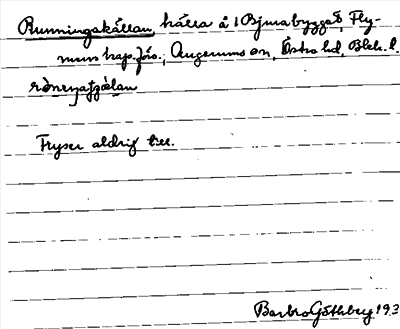 Runningakällan, källa å 1 Bjmabyggað, Fly-
mens kap.förs., Augerums sn, Östra hd, Blek. l.
Fryser aldrig till.
Barbro Göthberg 193